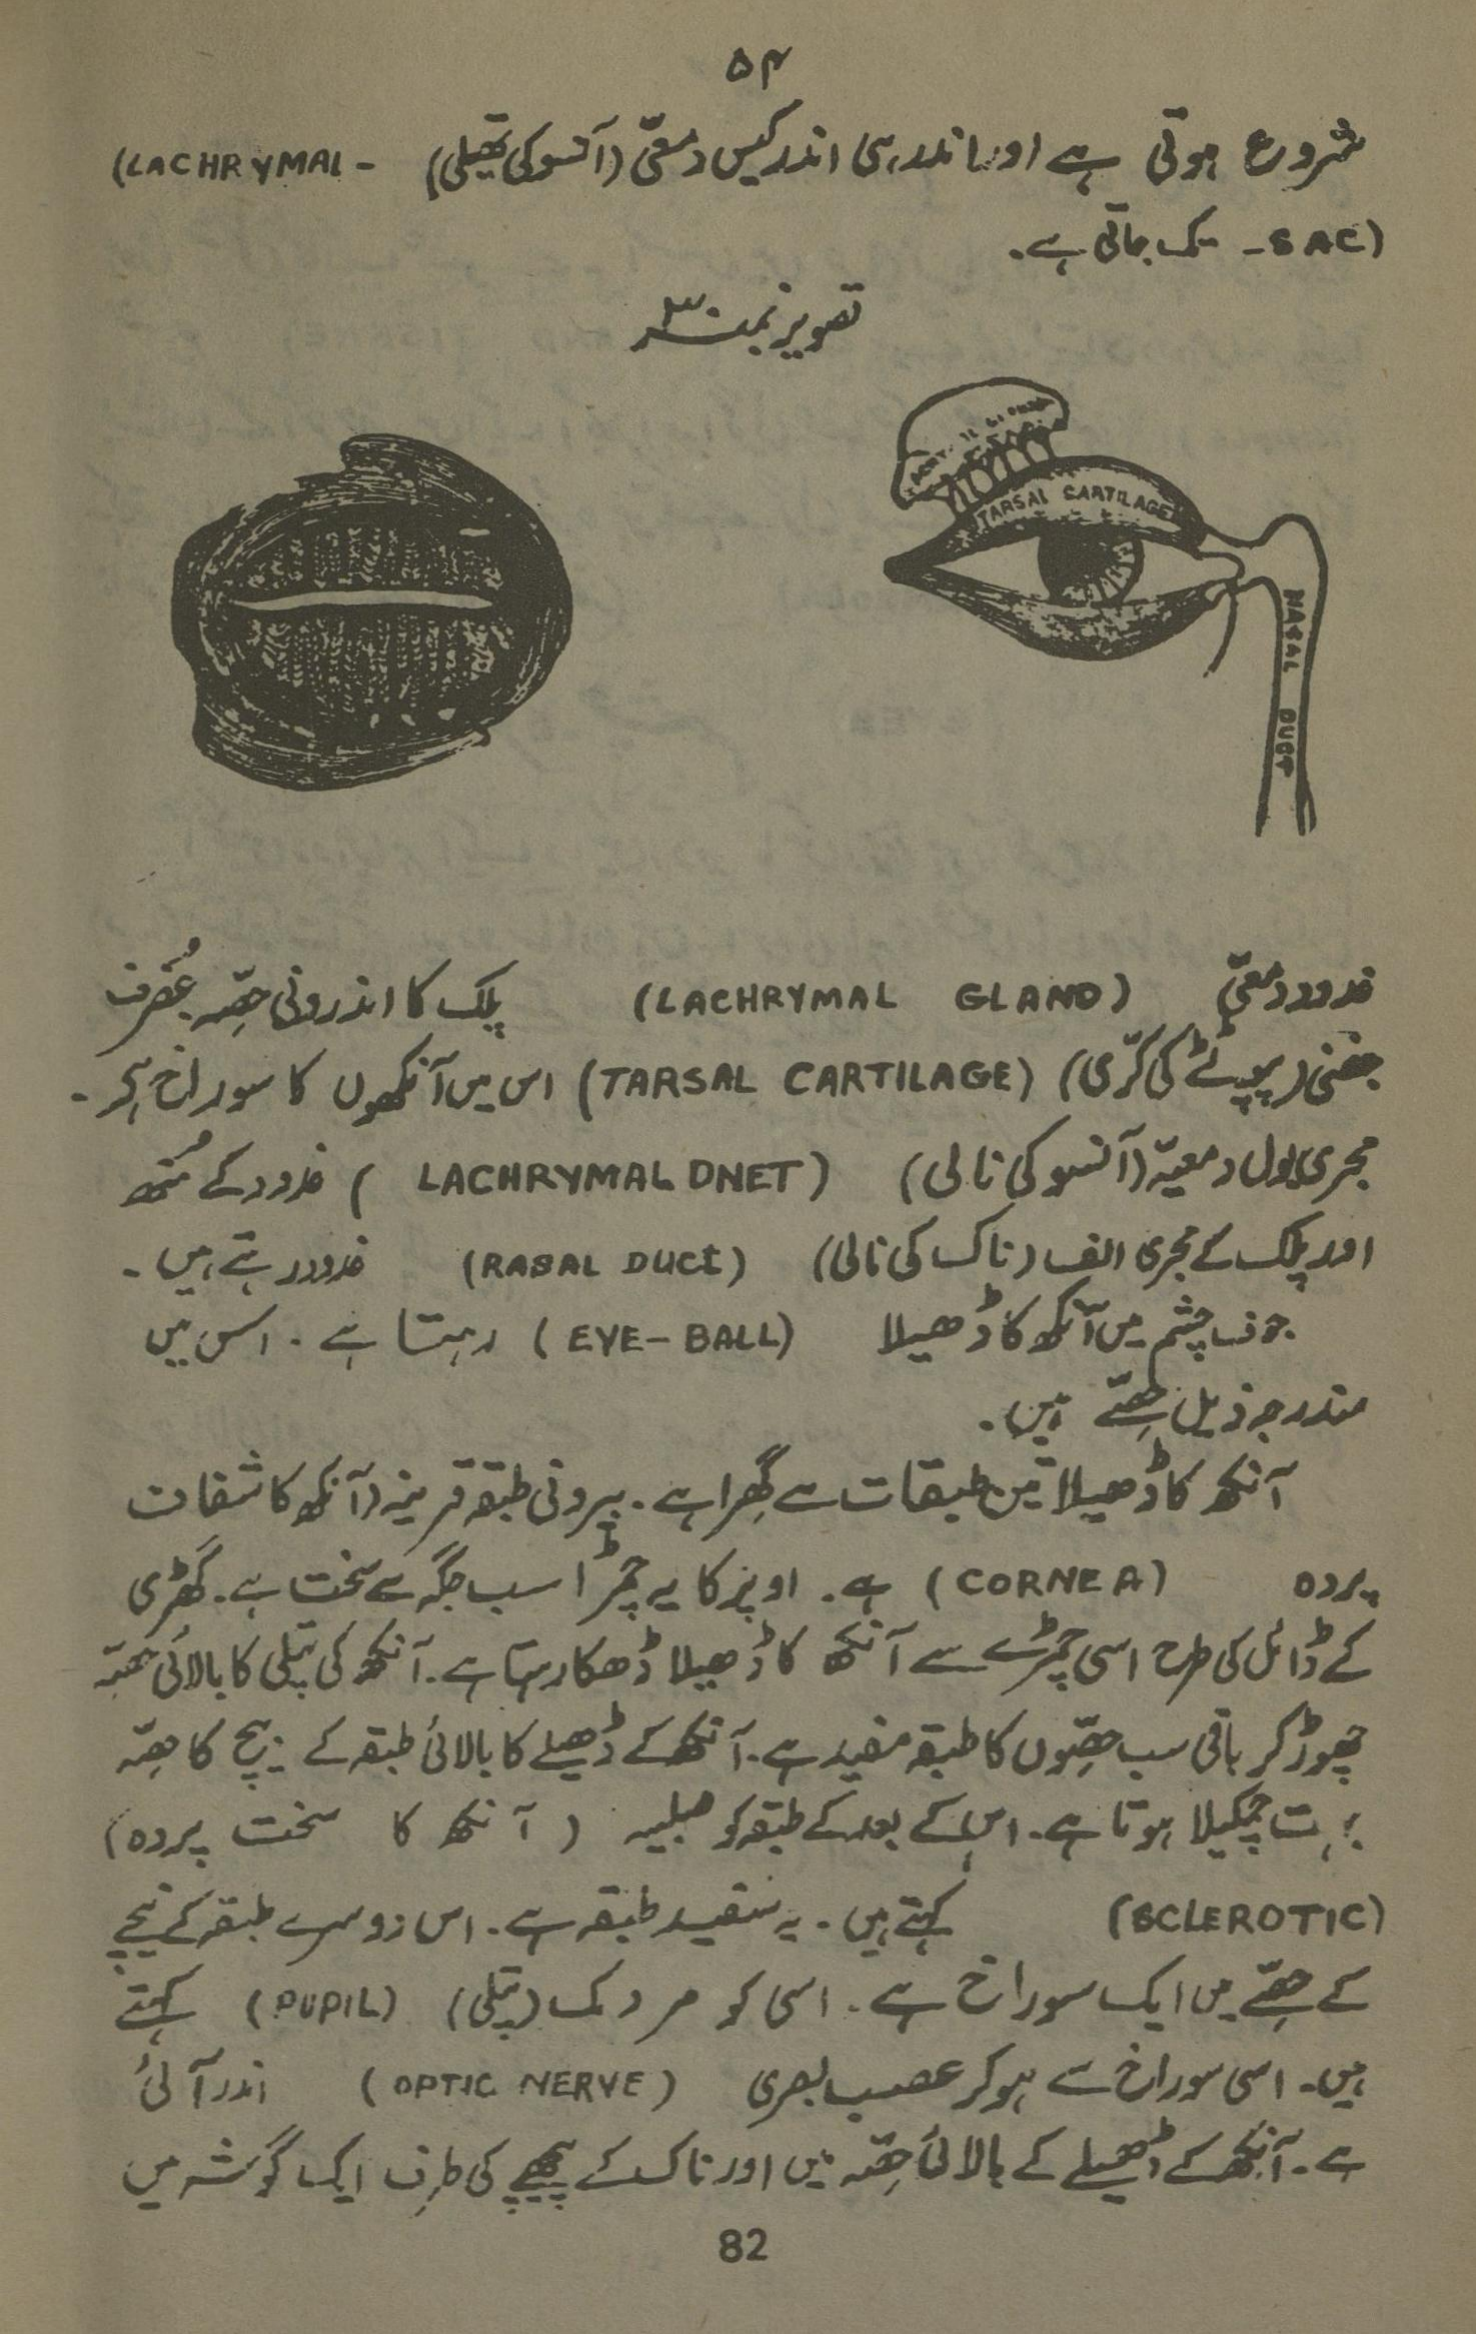 ۵۴
شروع ہوتی ہے اور اندر ہی اندر کیس دمعّی (آنسو کی تھیلی) (LACHRYMAL-
-SAC) تک جاتی ہے۔
تصویر نمبر ۳
TARSAL CARTILAGE
NASAL DUCT
غدود دمعّی (LACHRYMAL GLAND) پلک کا اندرونی حصّہ غُضرف
جفنی (پپوٹے کی کرّی) (TARSAL CARTILAGE) اس میں آنکھوں کا سوراخ ہے۔
مجری دمعیّہ (آنسو کی نالی) (LACHRYMAL DNET) غدود کے مُنھ
اور پلک کے مجری الف (ناک کی نالی) (RASAL DUCT) غدود رہتے ہیں۔
جوف چشم میں آنکھ کا ڈھیلا (EYE-BALL) رہتا ہے۔ اس میں
مندرجہ ذیل حصّے ہیں۔
آنکھ کا ڈھیلا تین طبقات سے گِھرا ہے۔ بیرونی طبقہ قرینہ (آنکھ کا شفاف
پردہ (CORNEA) ہے۔ اوپر کا یہ چمڑا سب جگہ سے سخت ہے۔ گھڑی
کے ڈائل کی طرح اسی چمڑے سے آنکھ کا ڈھیلا ڈھکا رہتا ہے۔ آنکھ کی پتلی کا بالائی حصّہ
چھوڑ کر باقی سب حصّوں کا طبقہ سفید ہے۔ آنکھ کے ڈھیلے کا بالائی طبقہ کے بیچ کا حصّہ
بہت چمکیلا ہوتا ہے۔ اس کے بعد کے طبقہ کو صلبیہ (آنکھ کا سخت پردہ)
(SCLEROTIC) کہتے ہیں۔ یہ سفید طبقہ ہے۔ اس دوسرے طبقہ کے نیچے
کے حصّے میں ایک سوراخ ہے۔ اسی کو مردمک (پتلی) (PUPIL) کہتے
ہیں۔ اسی سوراخ سے ہو کر عصب بصری (OPTIC NERVE) اندر آئی
ہے۔ آنکھ کے ڈھیلے کے بالائی حصّہ میں اور ناک کے پیچھے کی طرف ایک گوشہ میں
82